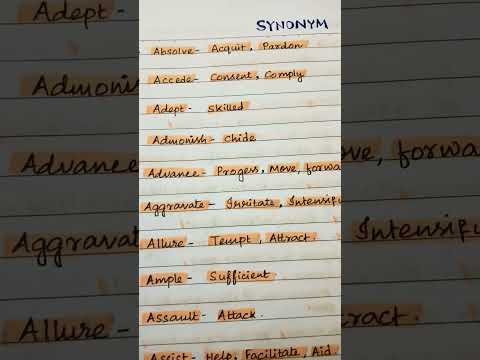 SYNONYM
Absolve- Acquit, Pardon
Accede- Consent, Comply
Adept- Skilled
Admonish- Chide
Advance- Progess, Move, forwa
Aggravate- Irritate, Intensify
Allure- Tempt, Attract.
Ample- Sufficient
Assault- Attack.
Assist- Help, Facilitate, Aid.
Adept-
Admonis
Advance
Aggravat
Allure-
ve, forwa
Intensify
tract.